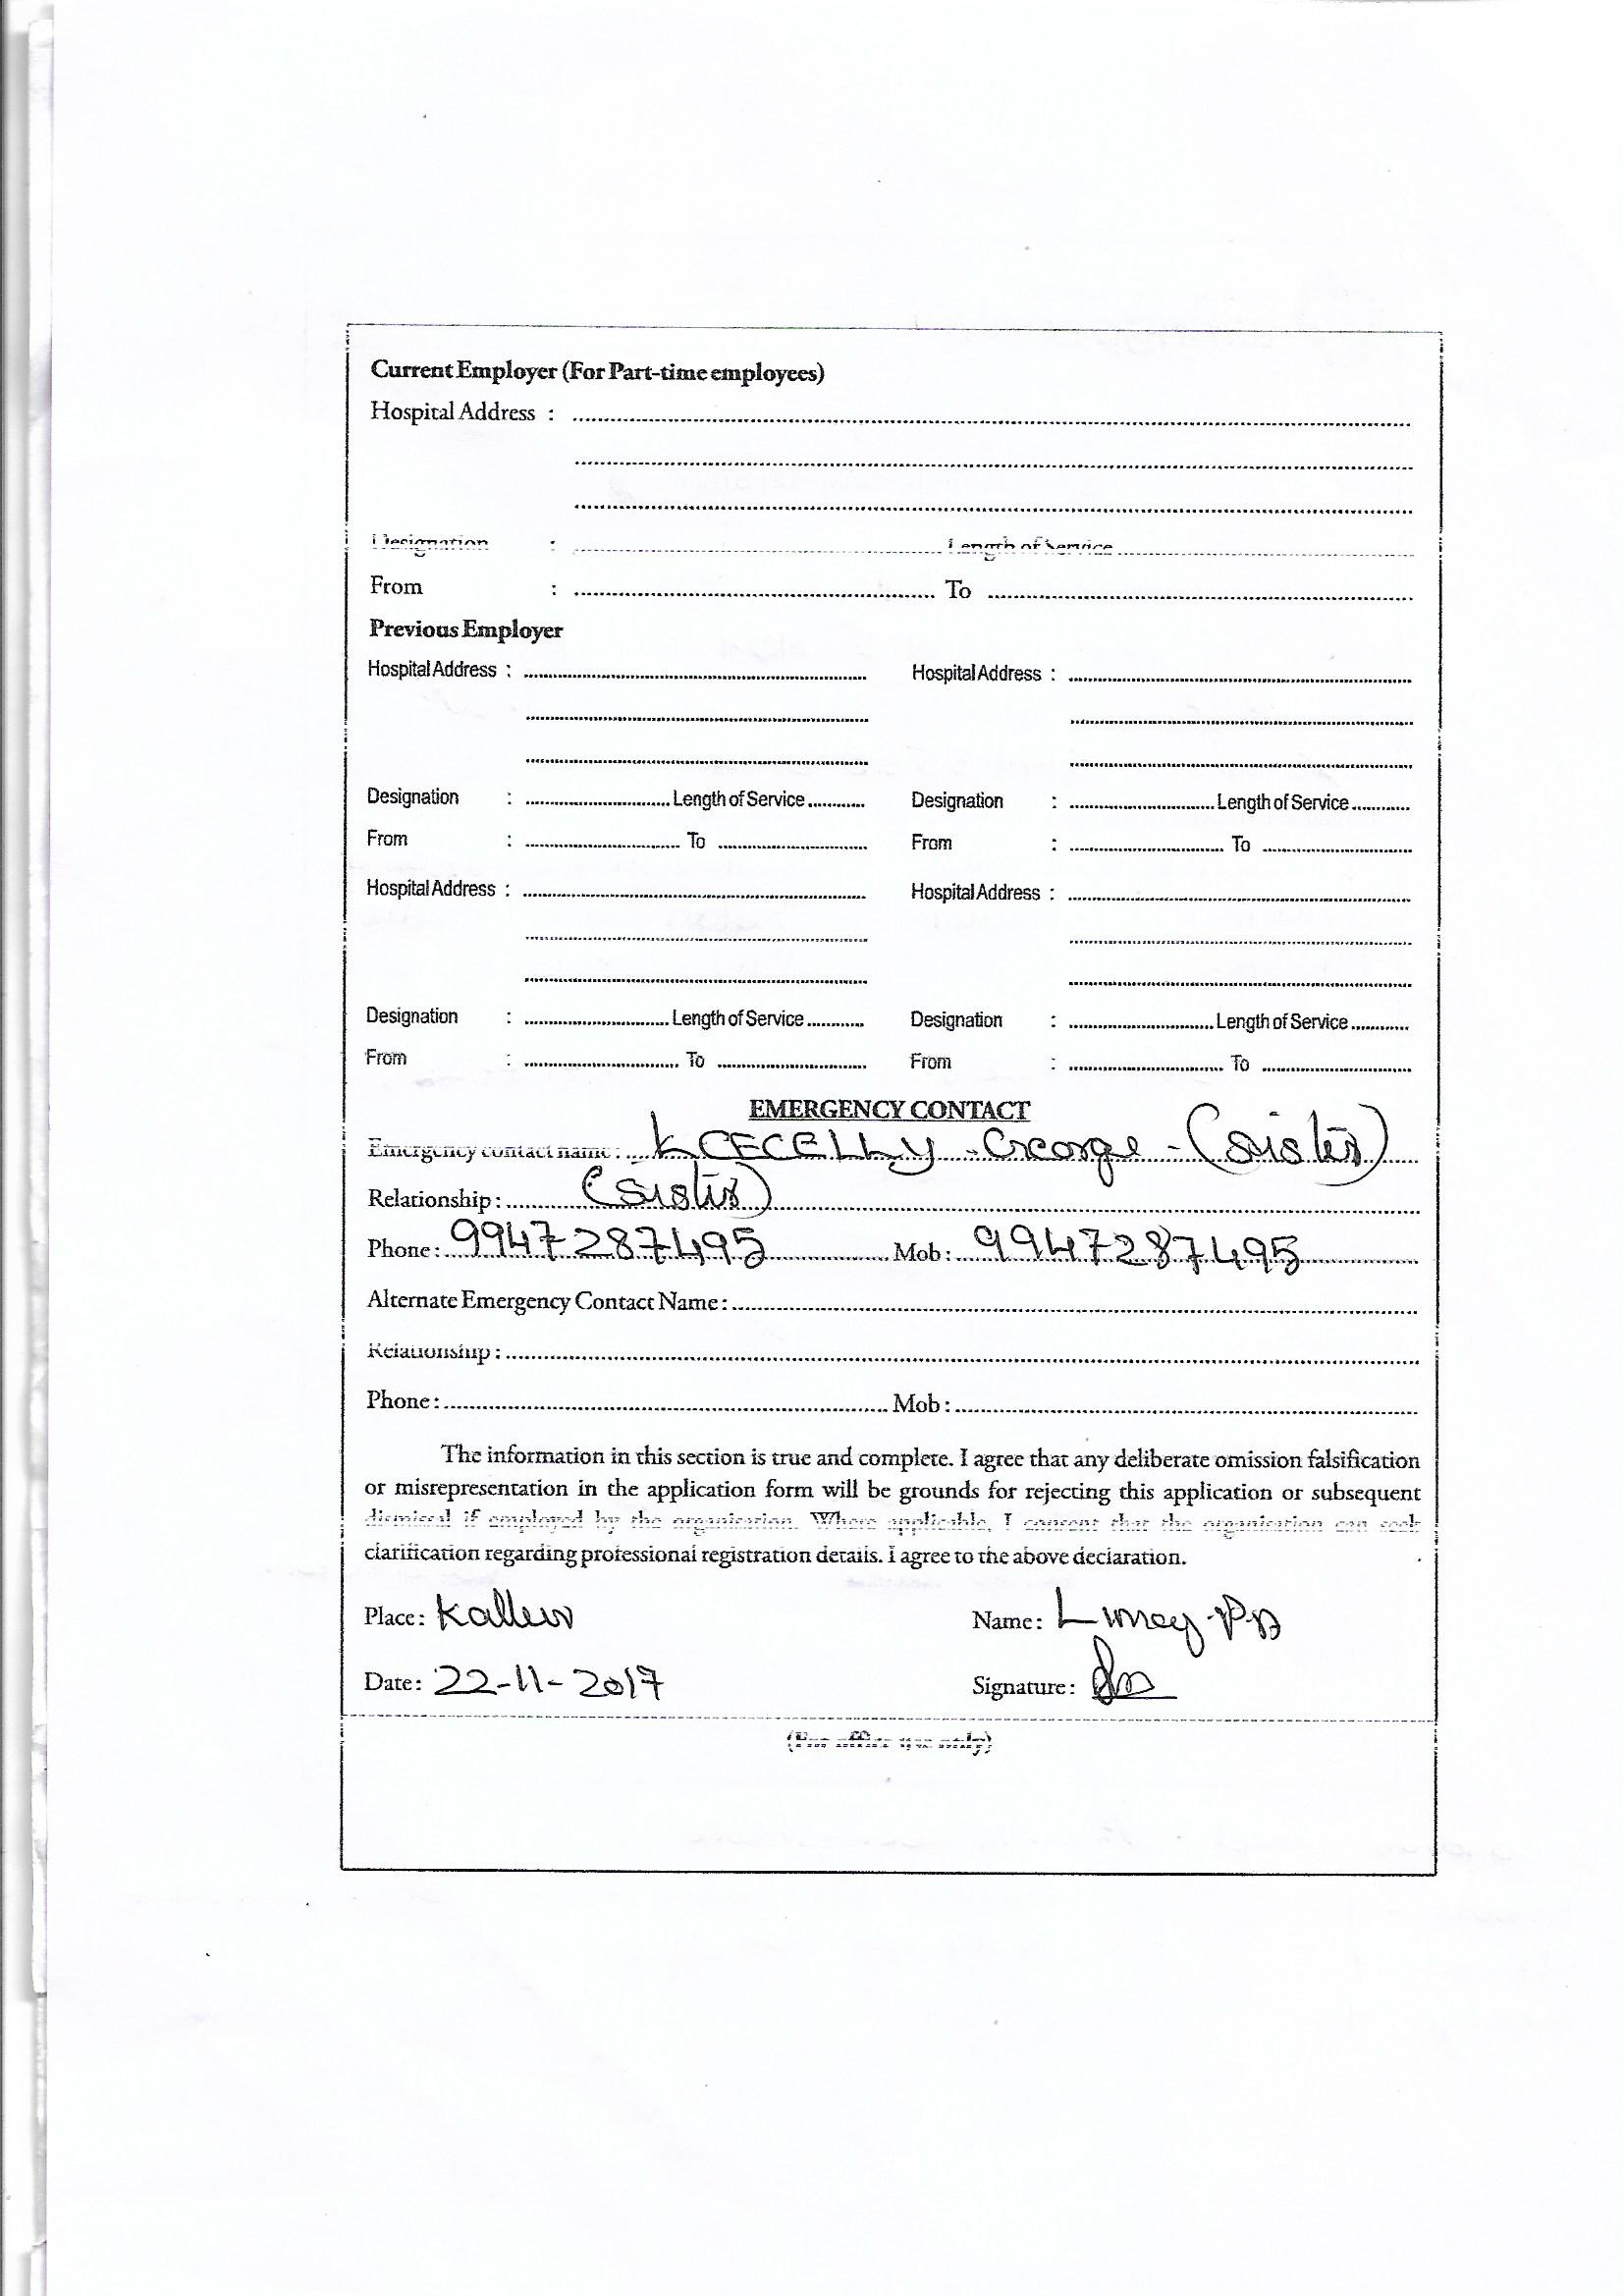 Current Employer (For Part-time employees)
Hospital Address : ........................................
........................................
........................................
Designation : ........................................ Length of Service ........................................
From : ........................................ To ........................................
Previous Employer
Hospital Address : .............................. Hospital Address : ..............................
.............................. ..............................
.............................. ..............................
Designation : .................... Length of Service ............ Designation : .................... Length of Service ............
From : .................... To .................... From : .................... To ....................
Hospital Address : .............................. Hospital Address : ..............................
.............................. ..............................
.............................. ..............................
Designation : .................... Length of Service ............ Designation : .................... Length of Service ............
From : .................... To .................... From : .................... To ....................
EMERGENCY CONTACT
Emergency contact name : K CECELLY - George - (Sister)
Relationship : (Sister)
Phone : 9947287495 Mob : 9947287495
Alternate Emergency Contact Name : ........................................
Relationship : ........................................
Phone : ........................................ Mob : ........................................
The information in this section is true and complete. I agree that any deliberate omission falsification
or misrepresentation in the application form will be grounds for rejecting this application or subsequent
dismissal if employed by the organisation. Where applicable, I consent that the organisation can seek
clarification regarding professional registration details. I agree to the above declaration.
Place : Name :
Date : 22-11-2017 Signature :
(For office use only)